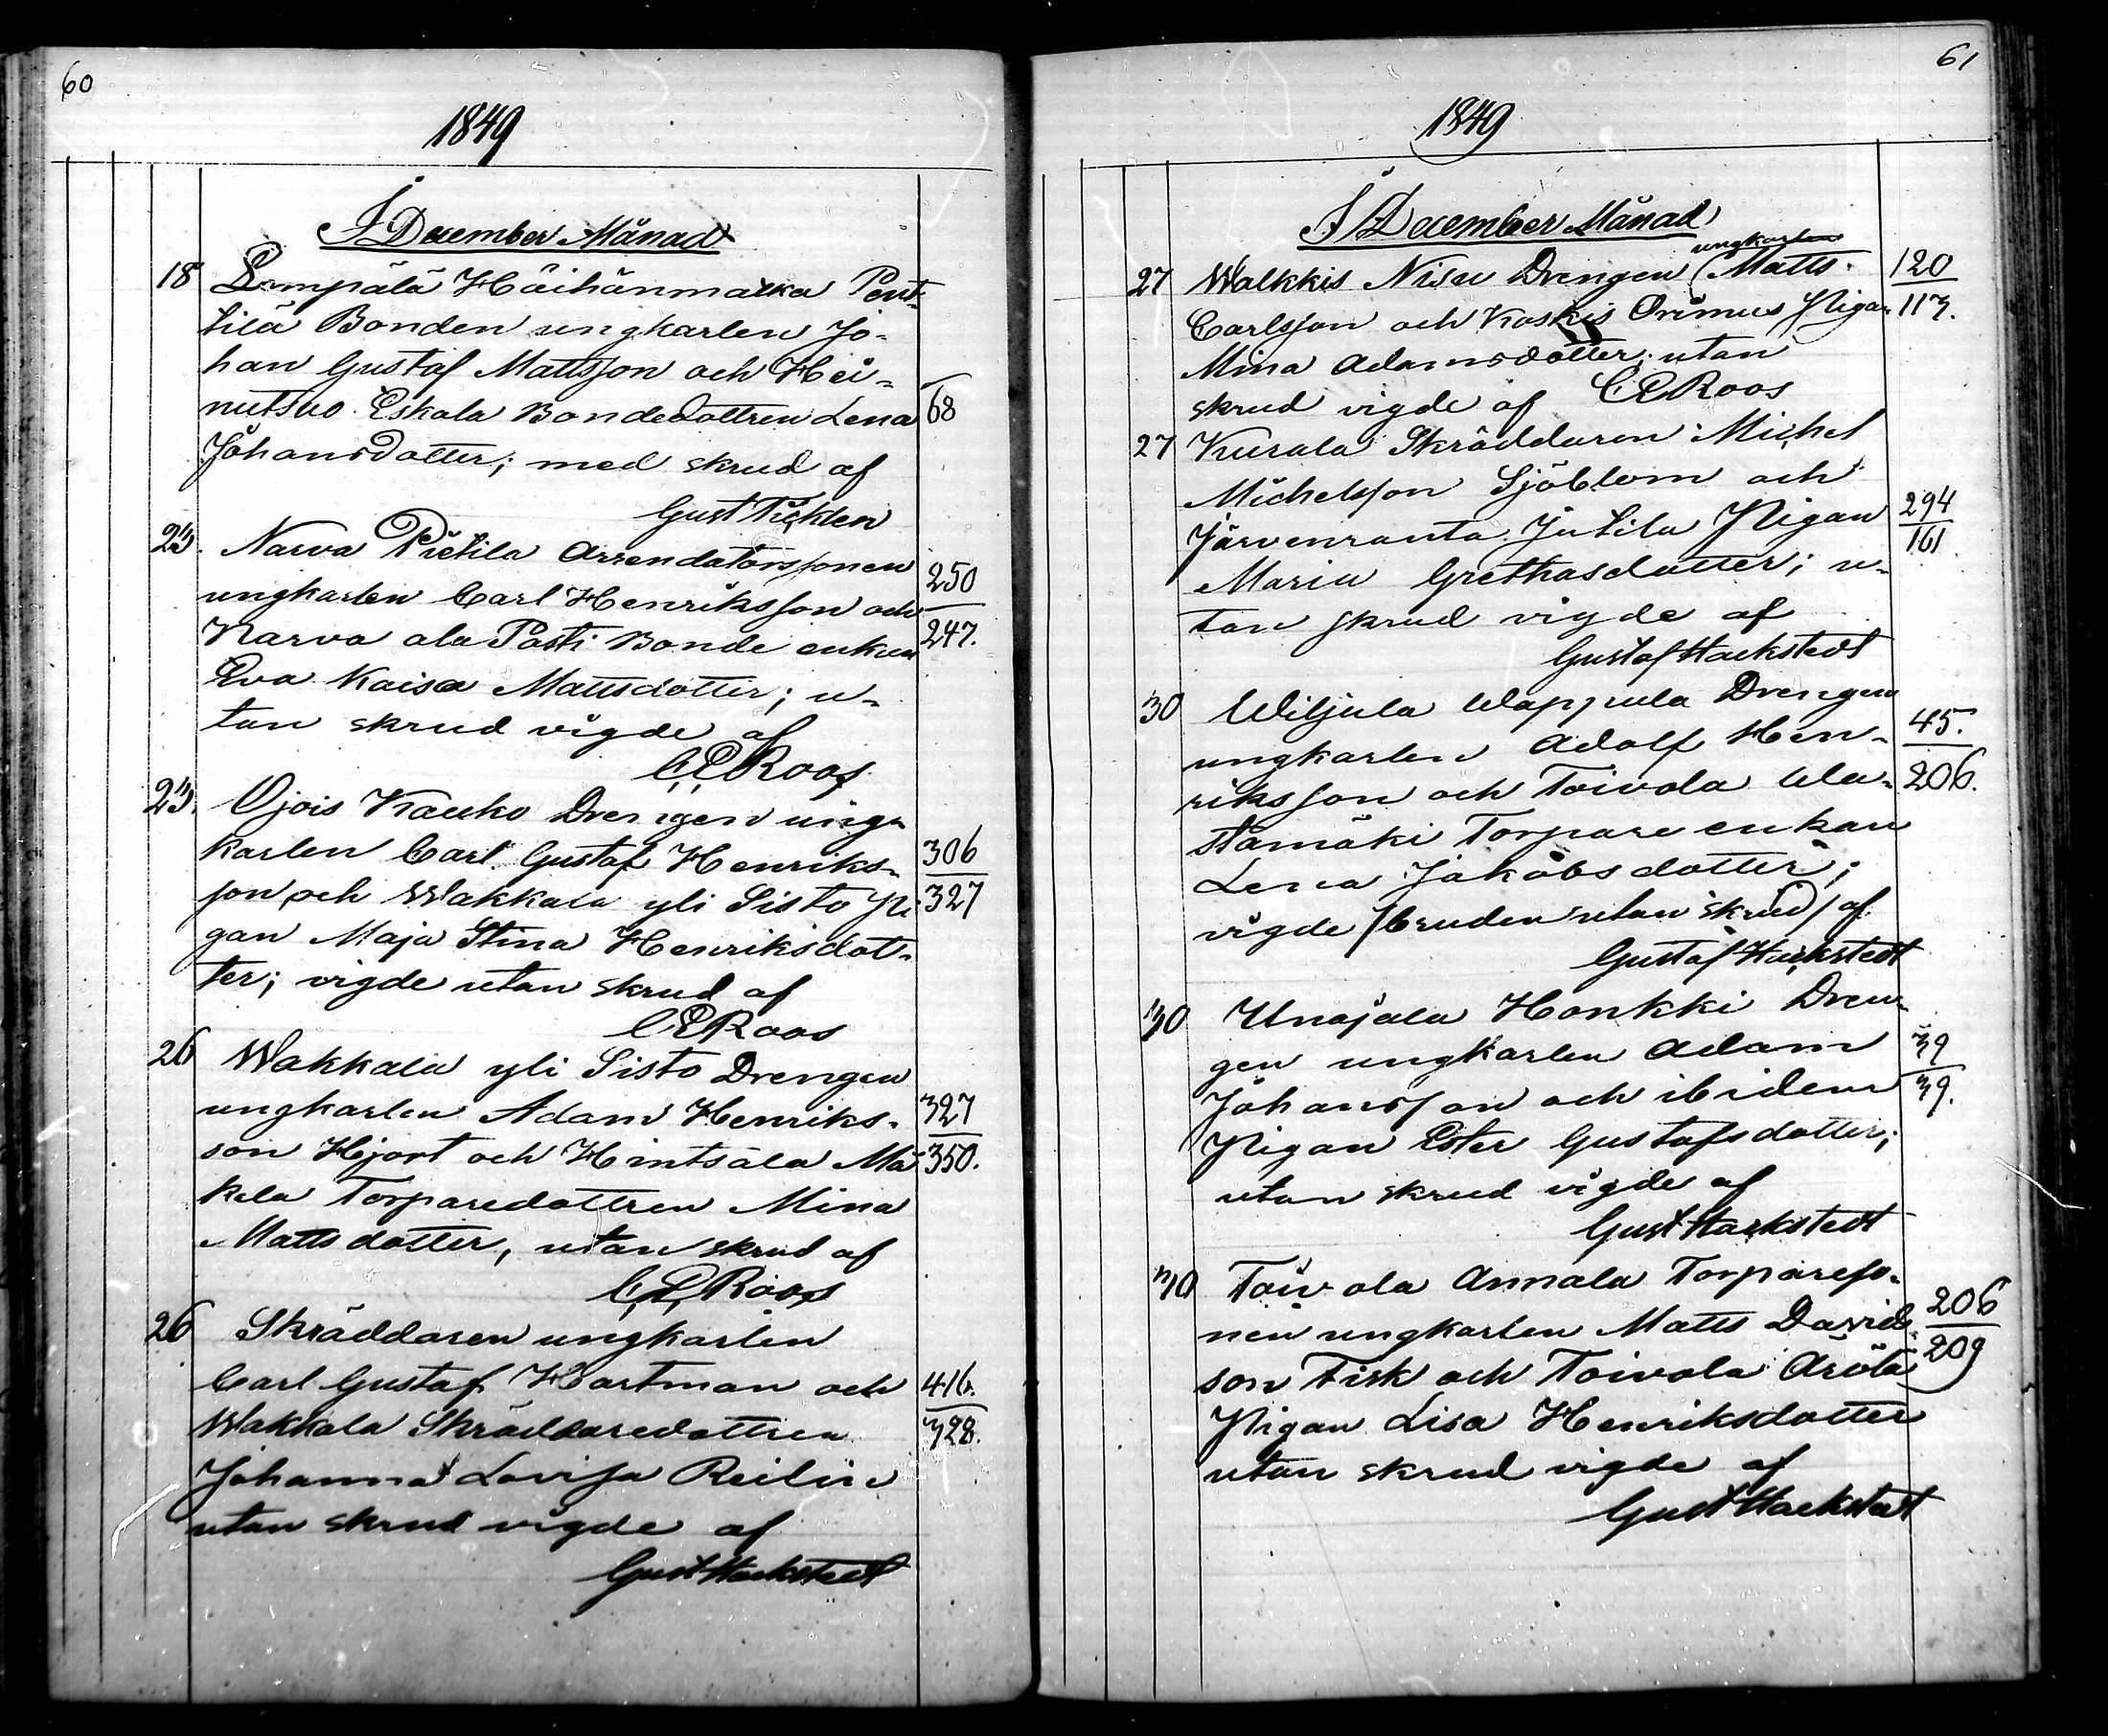 60
1849
I December Månad
18 Lempälä Häihänmatka Pent-
tilä Bonden ungkarlen Jo-
han Gustaf Mattsson och Hei-
nutsuo Eskola Bondedottren Lena 68
Johansdotter; med skrud af
Gust
23. Narva Pietilä Arrendatorssonen
ungkarlen Carl Henriksson och 250
Narva ala Pasti Bonde enkan 247.
Eva Kaisa Mattsdotter; u-
tan skrud vigde af
C E Roos
23. Ojois Kauko Drengen ung-
karlen Carl Gustaf Henriks- 306
son och Wakkala yli Sisto Pi- 327
gan Maja Stina Henriksdot-
ter; vigde utan skrud af
C E Roos
26 Wakkala yli Sisto Drengen
ungkarlen Adam Henriks- 327
son Hjort och Hintsala Mä- 350.
kelä Torparedottren Mina
Mattsdotter, utan skrud af
C E Roos
26 Skräddaren ungkarlen
Carl Gustaf Hartman och 416.
Wakkala Skräddaredottren 328.
Johanna Lovisa Reilin
utan skrud vigde af
Gust Hackstedt
61
1849
I December Månad
ungkarlen
27 Walkkis Nisu Drengen (Matts 120
Carlsson och Koskis Primus Pigan 113.
Mina Adamsdotter; utan
skrud vigde af C E Roos
27 Kurala Skräddaren Michel
Michelsson Sjöblom och
Järvenranta Jutila Pigan 294
Maria Grethasdotter; u- 161
tan skrud vigde af
Gustaf Hackstedt
30 Wiljula Wappula Drengen
ungkarlen Adolf Hen- 45.
riksson och Toivola Wa- 206.
stamäki Torpare enkan
Lena Jakobsdotter;
vigde (bruden utan skrud) af
Gustaf Hackstedt
30 Unajala Honkki Dren-
gen ungkarlen Adam 39
Johansson och ibidem 39.
Pigan Ester Gustafsdotter;
utan skrud vigde af
Gust Hackstedt
30 Toivola Annala Torpareso-
nen ungkarlen Matts Davids- 206
son Fisk och Toivola Arölä 209
Pigan Lisa Henriksdotter
utan skrud vigde af
Gust Hackstedt